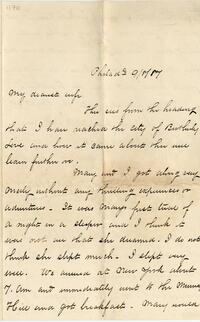 Philada 9/1/87
My dearest wife
You see from the heading
that I have reached the city of Brotherly
Love and how it came about you will
learn further on.
Mary and I got along very
nicely without any thrilling experiences or
adventures. It was Mary's first trial of
a night in a sleeper and I think it
was not all that she dreamed. I do not
think she slept much. I slept very
well. We arrived at New York about
7. Am and immediately went to the Murray
Hill and got breakfast. Mary